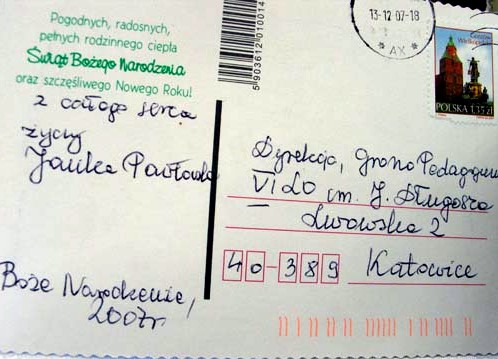 Pogodnych, radosnych,
pełnych rodzinnego ciepła
Świąt Bożego Narodzenia
oraz szczęśliwego Nowego Roku!
z całego serca
życzy
Janka Pawłowska
Boże Narodzenie,
2007r.
5903612010014
13-12 07-18
AX
Wielkopolski
POLSKA 1,35 zł
Dyrekcja, Grono Pedagogiczne
VI LO im. J. Długosza
Lwowska 2
40-389 Katowice